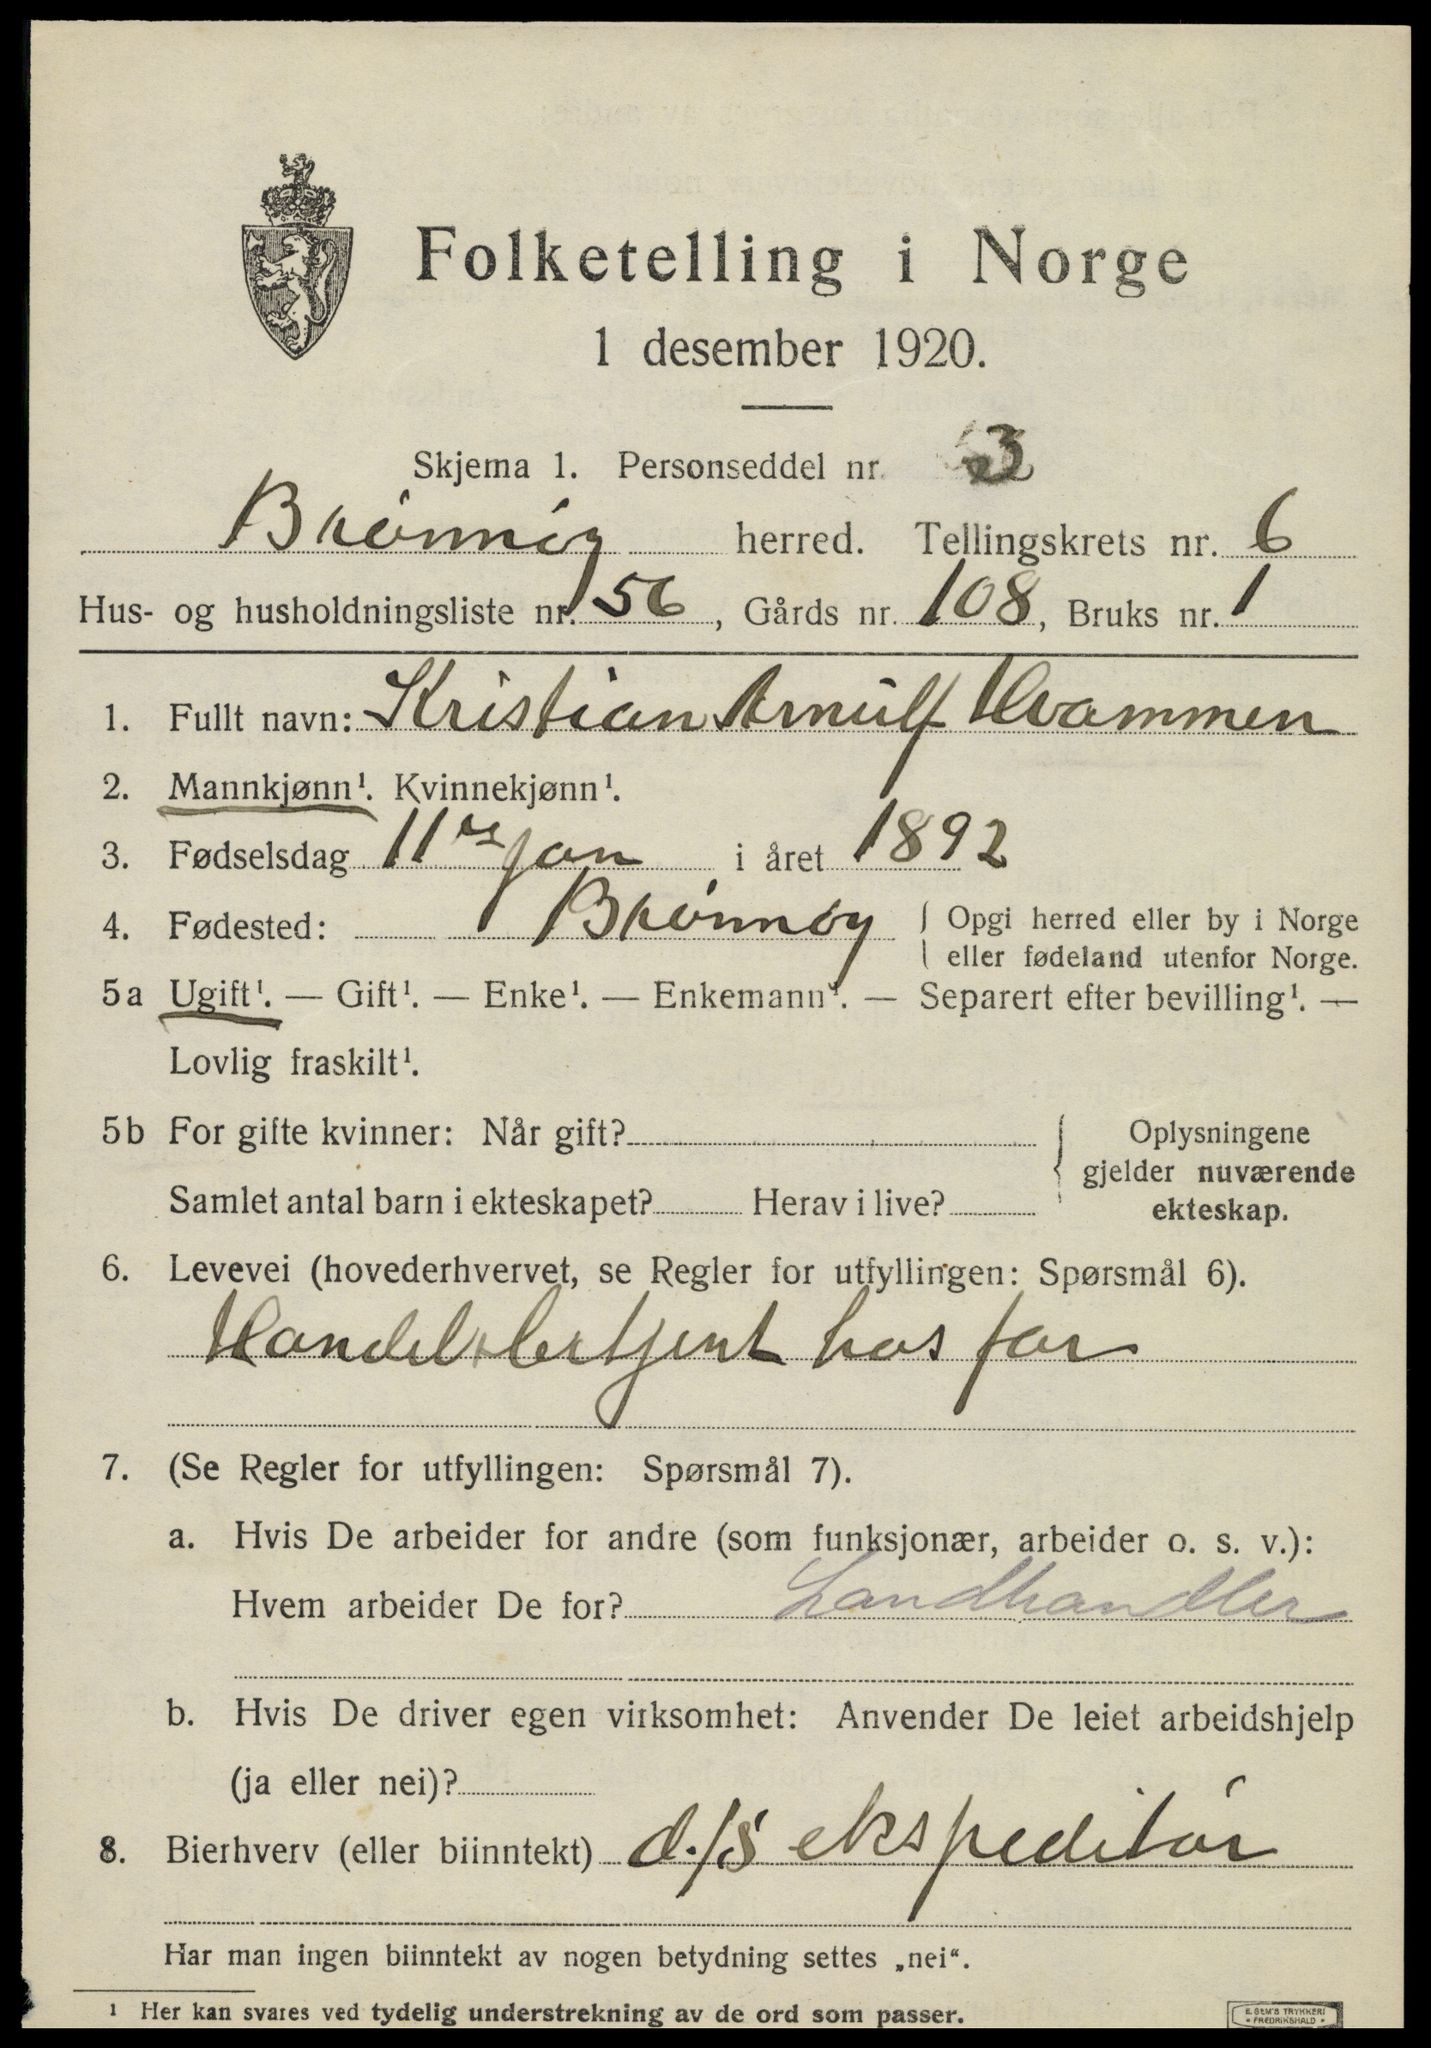 Folketelling i Norge
1 desember 1920.
Skjema 1. Personseddel nr. 3
Brønnøy herred. Tellingskrets nr. 6
Hus- og husholdningsliste nr. 56, Gårds nr. 108, Bruks nr. 1
1. Fullt navn: Kristian Arnulf Hvammen
2. Mannkjønn¹. Kvinnekjønn¹.
3. Fødselsdag 11te Jan i året 1892
4. Fødested: Brønnøy { Opgi herred eller by i Norge
eller fødeland utenfor Norge.
5a Ugift¹. — Gift¹. — Enke¹. — Enkemann¹. — Separert efter bevilling¹. —
Lovlig fraskilt¹.
5b For gifte kvinner: Når gift? Oplysningene
gjelder nuværende
Samlet antal barn i ekteskapet? Herav i live? ekteskap.
6. Levevei (hovederhvervet, se Regler for utfyllingen: Spørsmål 6).
Handelsbetjent hos far
7. (Se Regler for utfyllingen: Spørsmål 7).
a. Hvis De arbeider for andre (som funksjonær, arbeider o. s. v.):
Hvem arbeider De for? Landhandler
b. Hvis De driver egen virksomhet: Anvender De leiet arbeidshjelp
(ja eller nei)?
8. Bierhverv (eller biinntekt) d./s ekspeditør
Har man ingen biinntekt av nogen betydning settes „nei“.
¹ Her kan svares ved tydelig understrekning av de ord som passer.
E. SEM'S TRYKKERI
• FREDRIKSHALD •